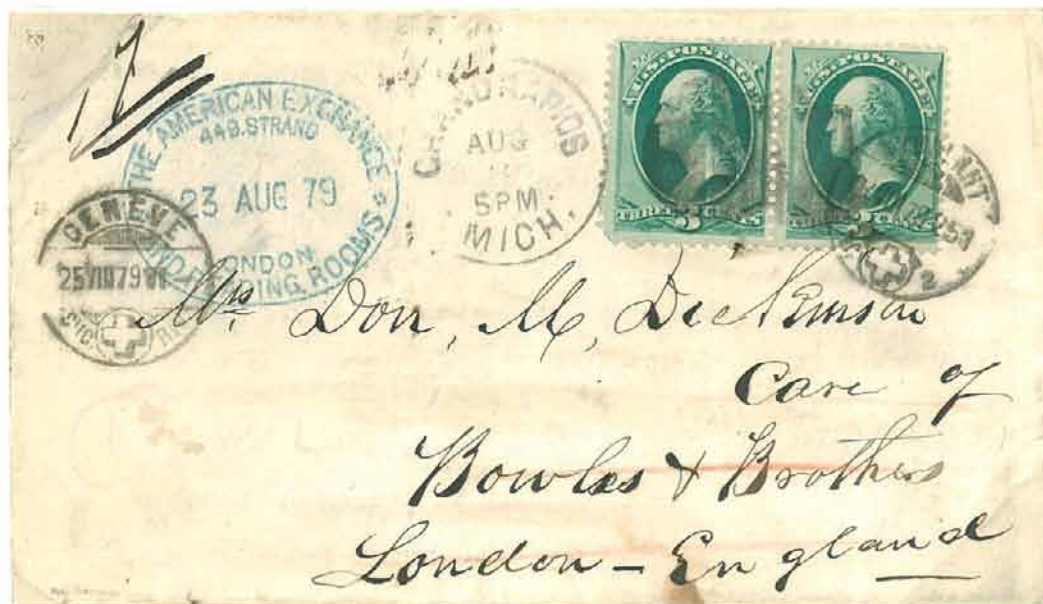 THE AMERICAN EXCHANGE
449. STRAND
23 AUG 79
LONDON
READING ROOMS
GRAND RAPIDS
AUG
5PM
MICH.
U.S. POSTAGE
THREE 3 CENTS
U.S. POSTAGE
GENEVE
25 VIII 79
2
Mrs Don. M. Dickinson
Care of
Bowles & Brothers
London - England